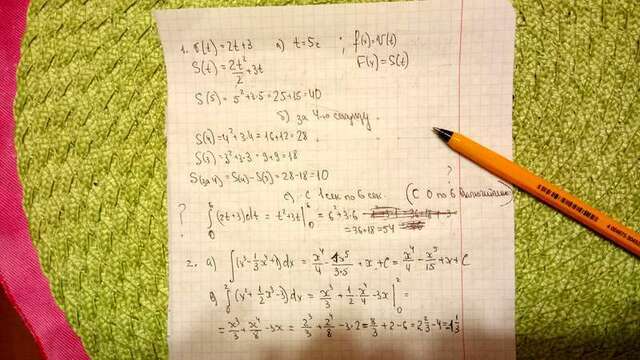 1. v(t) = 2t+3 а) t = 5с ; f(x) = v(t)
S(t) = 2t²/2 + 3t F(x) = S(t)
S(5) = 5² + 3·5 = 25+15 = 40
б) за 4-ю секунду
S(4) = 4² + 3·4 = 16+12 = 28
S(3) = 3² + 3·3 = 9+9 = 18
S(за 4) = S(4) - S(3) = 28-18 = 10
?
с 1 сек по 6 сек. (с 0 по 6 включительно)
? ∫₀⁶ (2t+3)dt = t²+3t |₀⁶ = 6² + 3·6
= 36+18 = 54
2. а) ∫(x³ - 1/3 x⁴ + 1)dx = x⁴/4 - x⁵/3·5 + x + C = x⁴/4 - x⁵/15 + x + C
∫₀² (x² + 1/2 x³ - 3)dx = x³/3 + 1/2 · x⁴/4 - 3x |₀² =
= x³/3 + x⁴/8 - 3x = 2³/3 + 2⁴/8 - 3·2 = 8/3 + 2 - 6 = 2 2/3 - 4 = -1 1/3